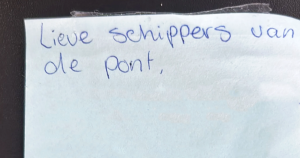 Lieve schippers van
de pont,